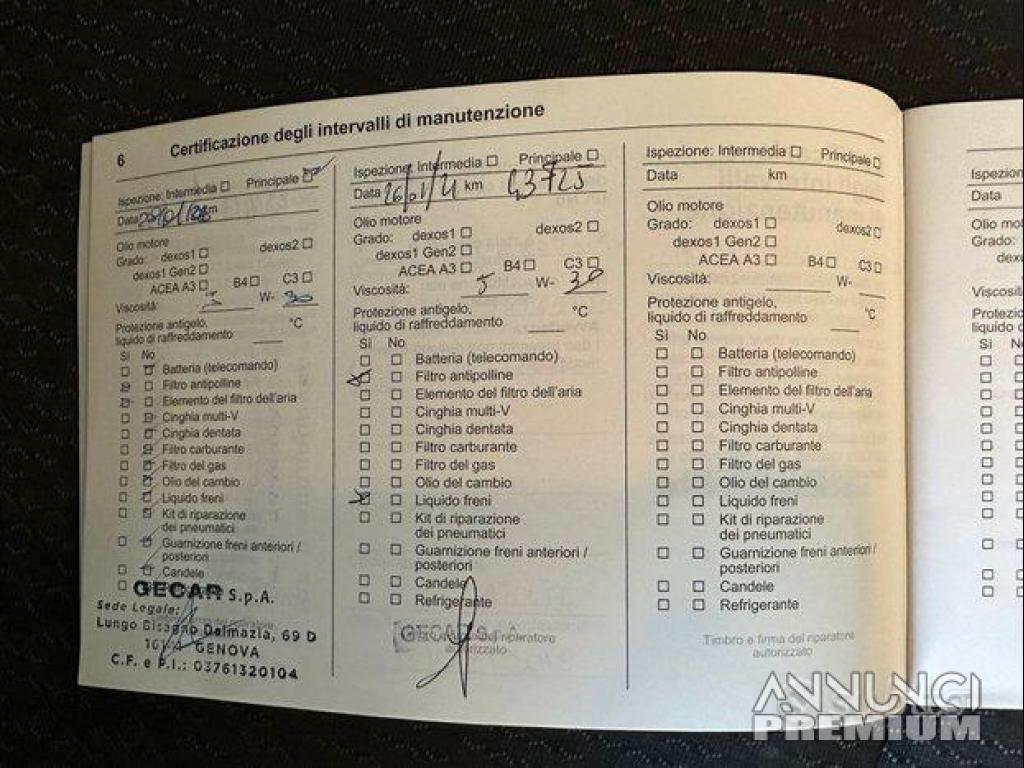 6 Certificazione degli intervalli di manutenzione
Ispezione: Intermedia Principale
Data km
Olio motore
Grado: dexos1 dexos2
dexos1 Gen2
ACEA A3 B4 C3
Viscosità: 5 W- 30
Protezione antigelo,
liquido di raffreddamento °C
Sì No
Batteria (telecomando)
Filtro antipolline
Elemento del filtro dell'aria
Cinghia multi-V
Cinghia dentata
Filtro carburante
Filtro del gas
Olio del cambio
Liquido freni
Kit di riparazione
dei pneumatici
Guarnizione freni anteriori /
posteriori
Candele
GECAR S.p.A.
Sede Legale:
Lungo Bisagno Dalmazia, 69 D
GENOVA
C.F. e P.I.: 03761320104
Ispezione: Intermedia Principale
Data 26/01/21 km 43725
Olio motore
Grado: dexos1 dexos2
dexos1 Gen2
ACEA A3 B4 C3
Viscosità: 5 W- 30
Protezione antigelo,
liquido di raffreddamento °C
Sì No
Batteria (telecomando)
Filtro antipolline
Elemento del filtro dell'aria
Cinghia multi-V
Cinghia dentata
Filtro carburante
Filtro del gas
Olio del cambio
Liquido freni
Kit di riparazione
dei pneumatici
Guarnizione freni anteriori /
posteriori
Candele
Refrigerante
GECAR del riparatore
autorizzato
Ispezione: Intermedia Principale
Data km
Olio motore
Grado: dexos1 dexos2
dexos1 Gen2
ACEA A3 B4 C3
Viscosità: W-
Protezione antigelo,
liquido di raffreddamento °C
Sì No
Batteria (telecomando)
Filtro antipolline
Elemento del filtro dell'aria
Cinghia multi-V
Cinghia dentata
Filtro carburante
Filtro del gas
Olio del cambio
Liquido freni
Kit di riparazione
dei pneumatici
Guarnizione freni anteriori /
posteriori
Candele
Refrigerante
Timbro e firma del riparatore
autorizzato
Ispezion
Data
Olio mo
Grado:
dex
Viscosit
Protezio
liquido d
Sì No
ANNUNCI
PREMIUM